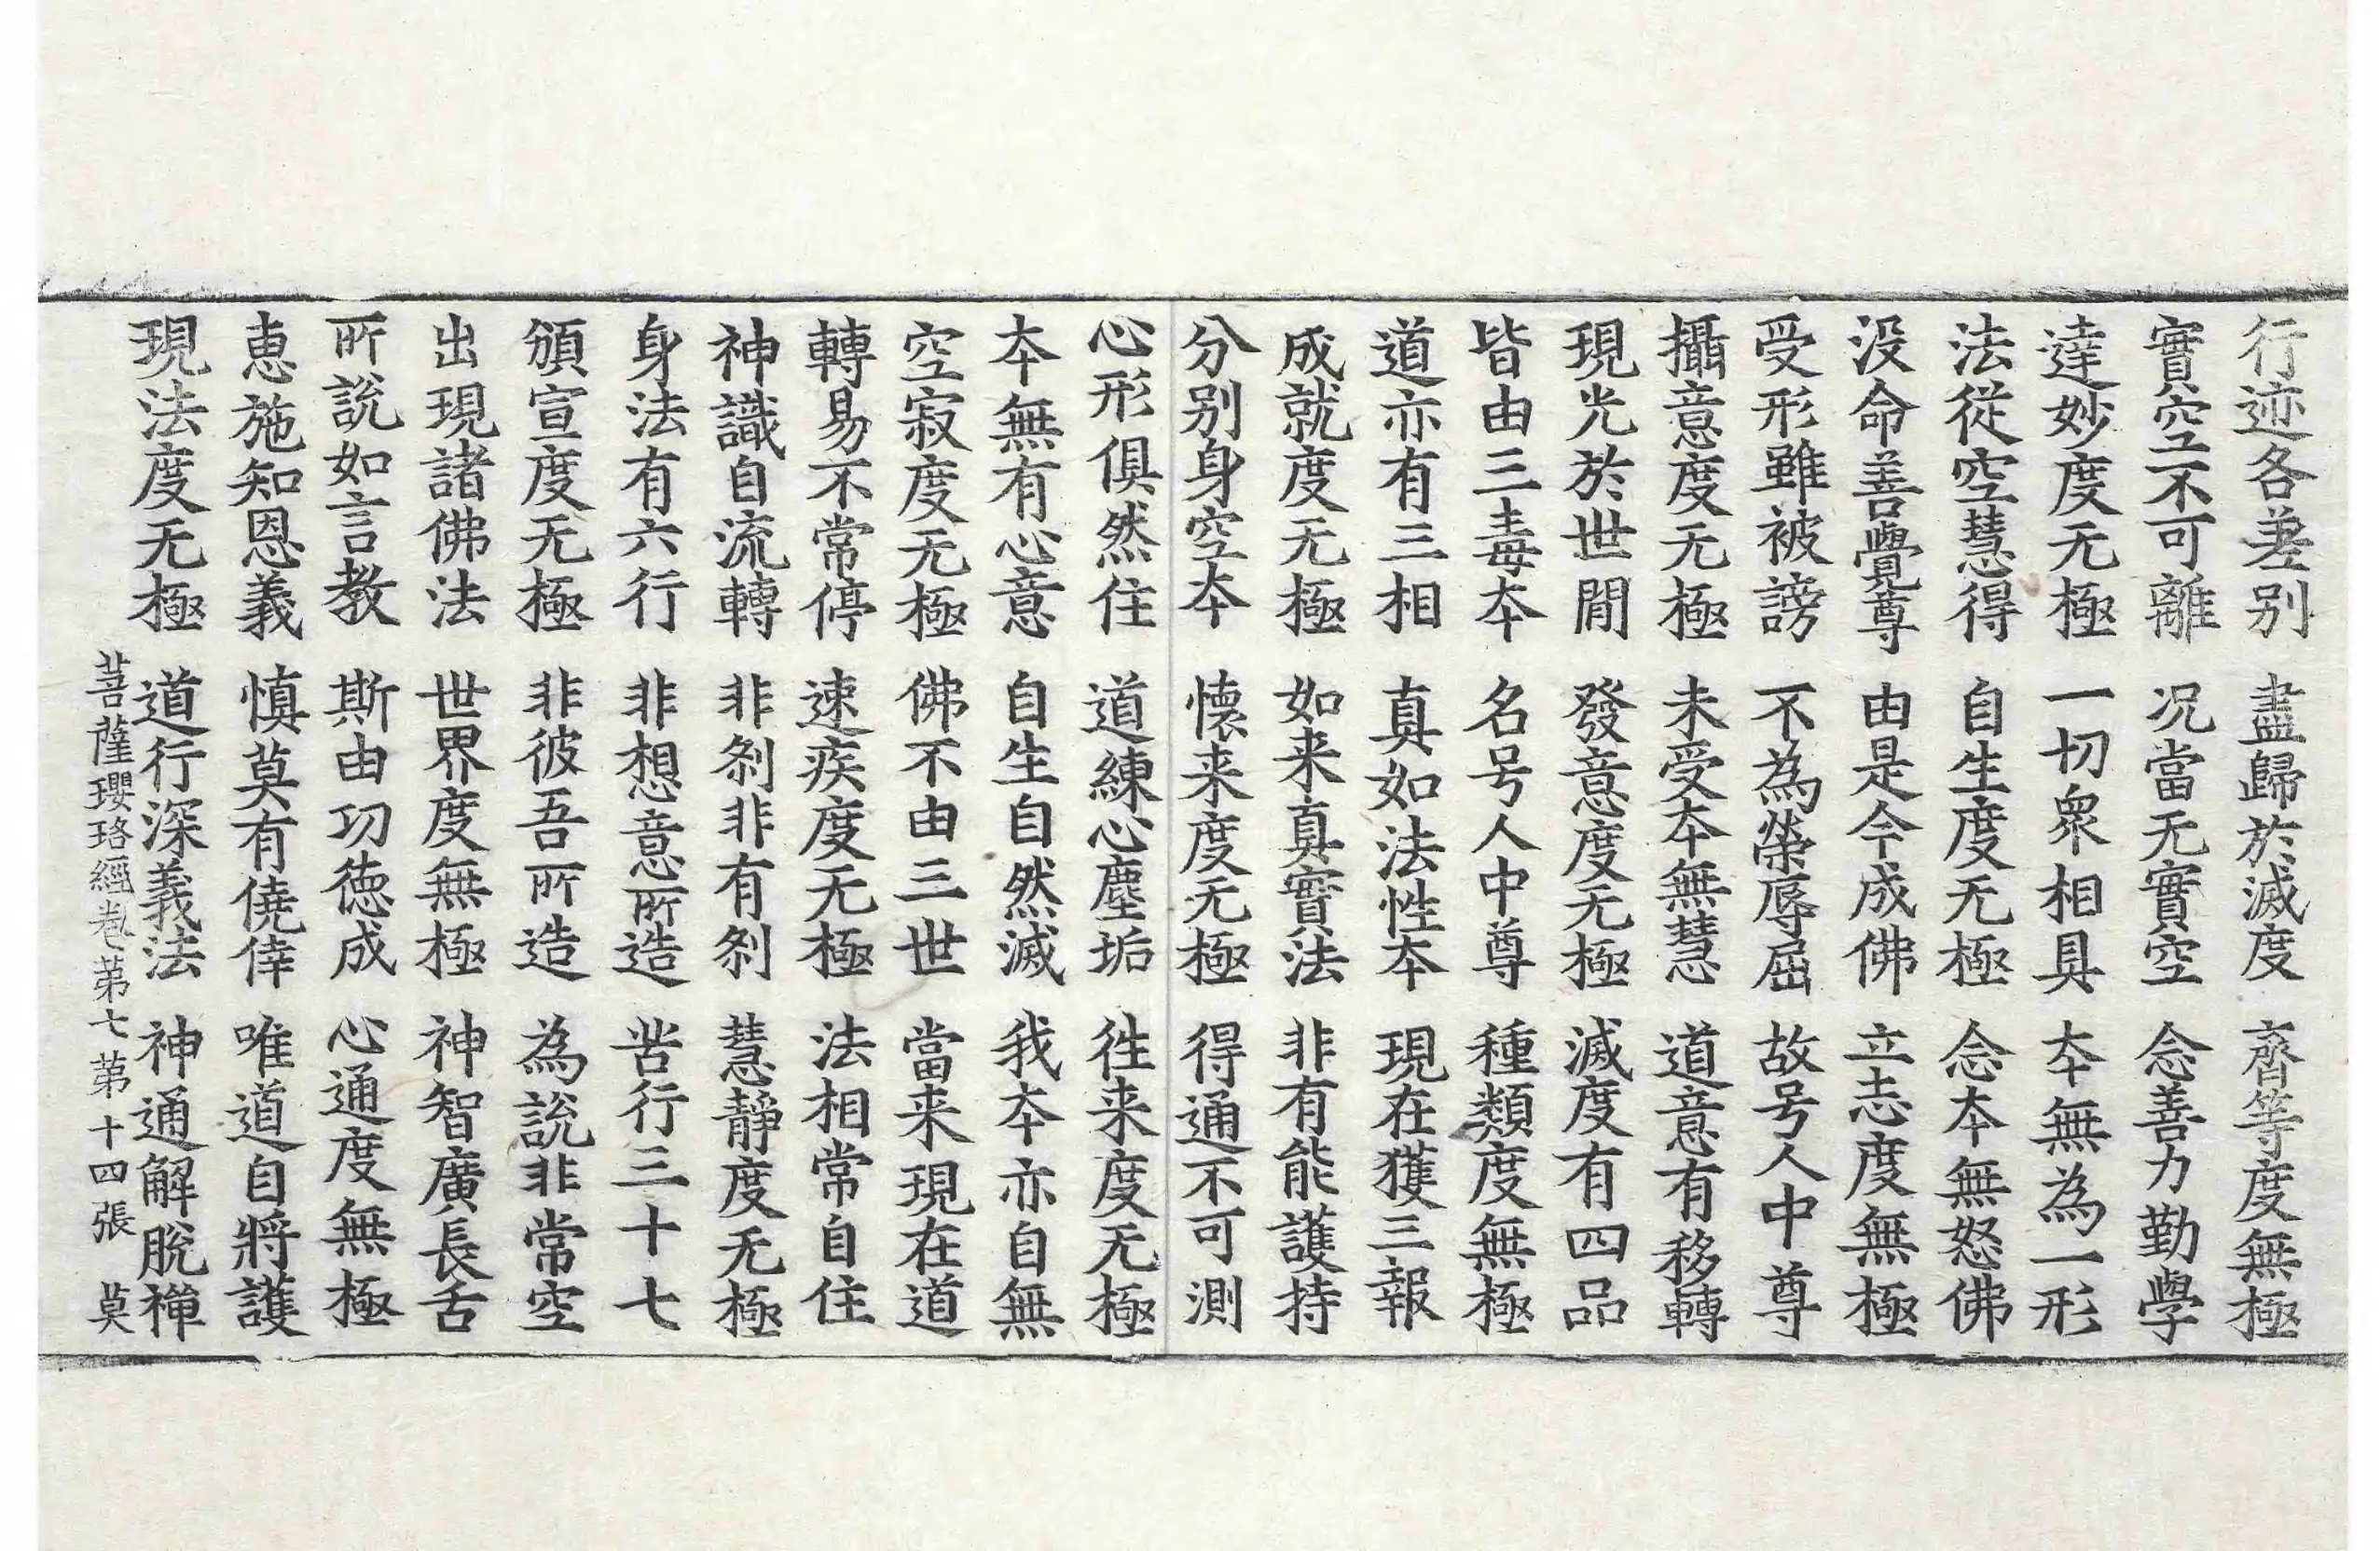 行迹各差别　盡歸於滅度　齊等度無極
實空不可離　况當无實空　念善力勤學
達妙度无極　一切衆相具　本無為一形
法從空慧得　自生度无極　念本無怒佛
没命善覺尊　由是今成佛　立志度無極
受形雖被謗　不為榮辱屈　故号人中尊
攝意度无極　未受本無慧　道意有移轉
現光於世間　發意度无極　滅度有四品
皆由三毒本　名号人中尊　種類度無極
道亦有三相　真如法性本　現在獲三報
成就度无極　如来真實法　非有能護持
分别身空本　懐来度无極　得通不可測
心形俱然住　道練心塵垢　往来度无極
本無有心意　自生自然滅　我本亦自無
空寂度无極　佛不由三世　當来現在道
轉易不常停　速疾度无極　法相常自住
神識自流轉　非剎非有剎　慧静度无極
身法有六行　非想意所造　苦行三十七
頒宣度无極　非彼吾所造　為説非常空
出現諸佛法　世界度無極　神智廣長舌
所説如言教　斯由功徳成　心通度無極
恵施知恩義　慎莫有僥倖　唯道自將護
現法度无極　道行深義法　神通解脱禪
菩薩瓔珞經卷第七第十四張　莫